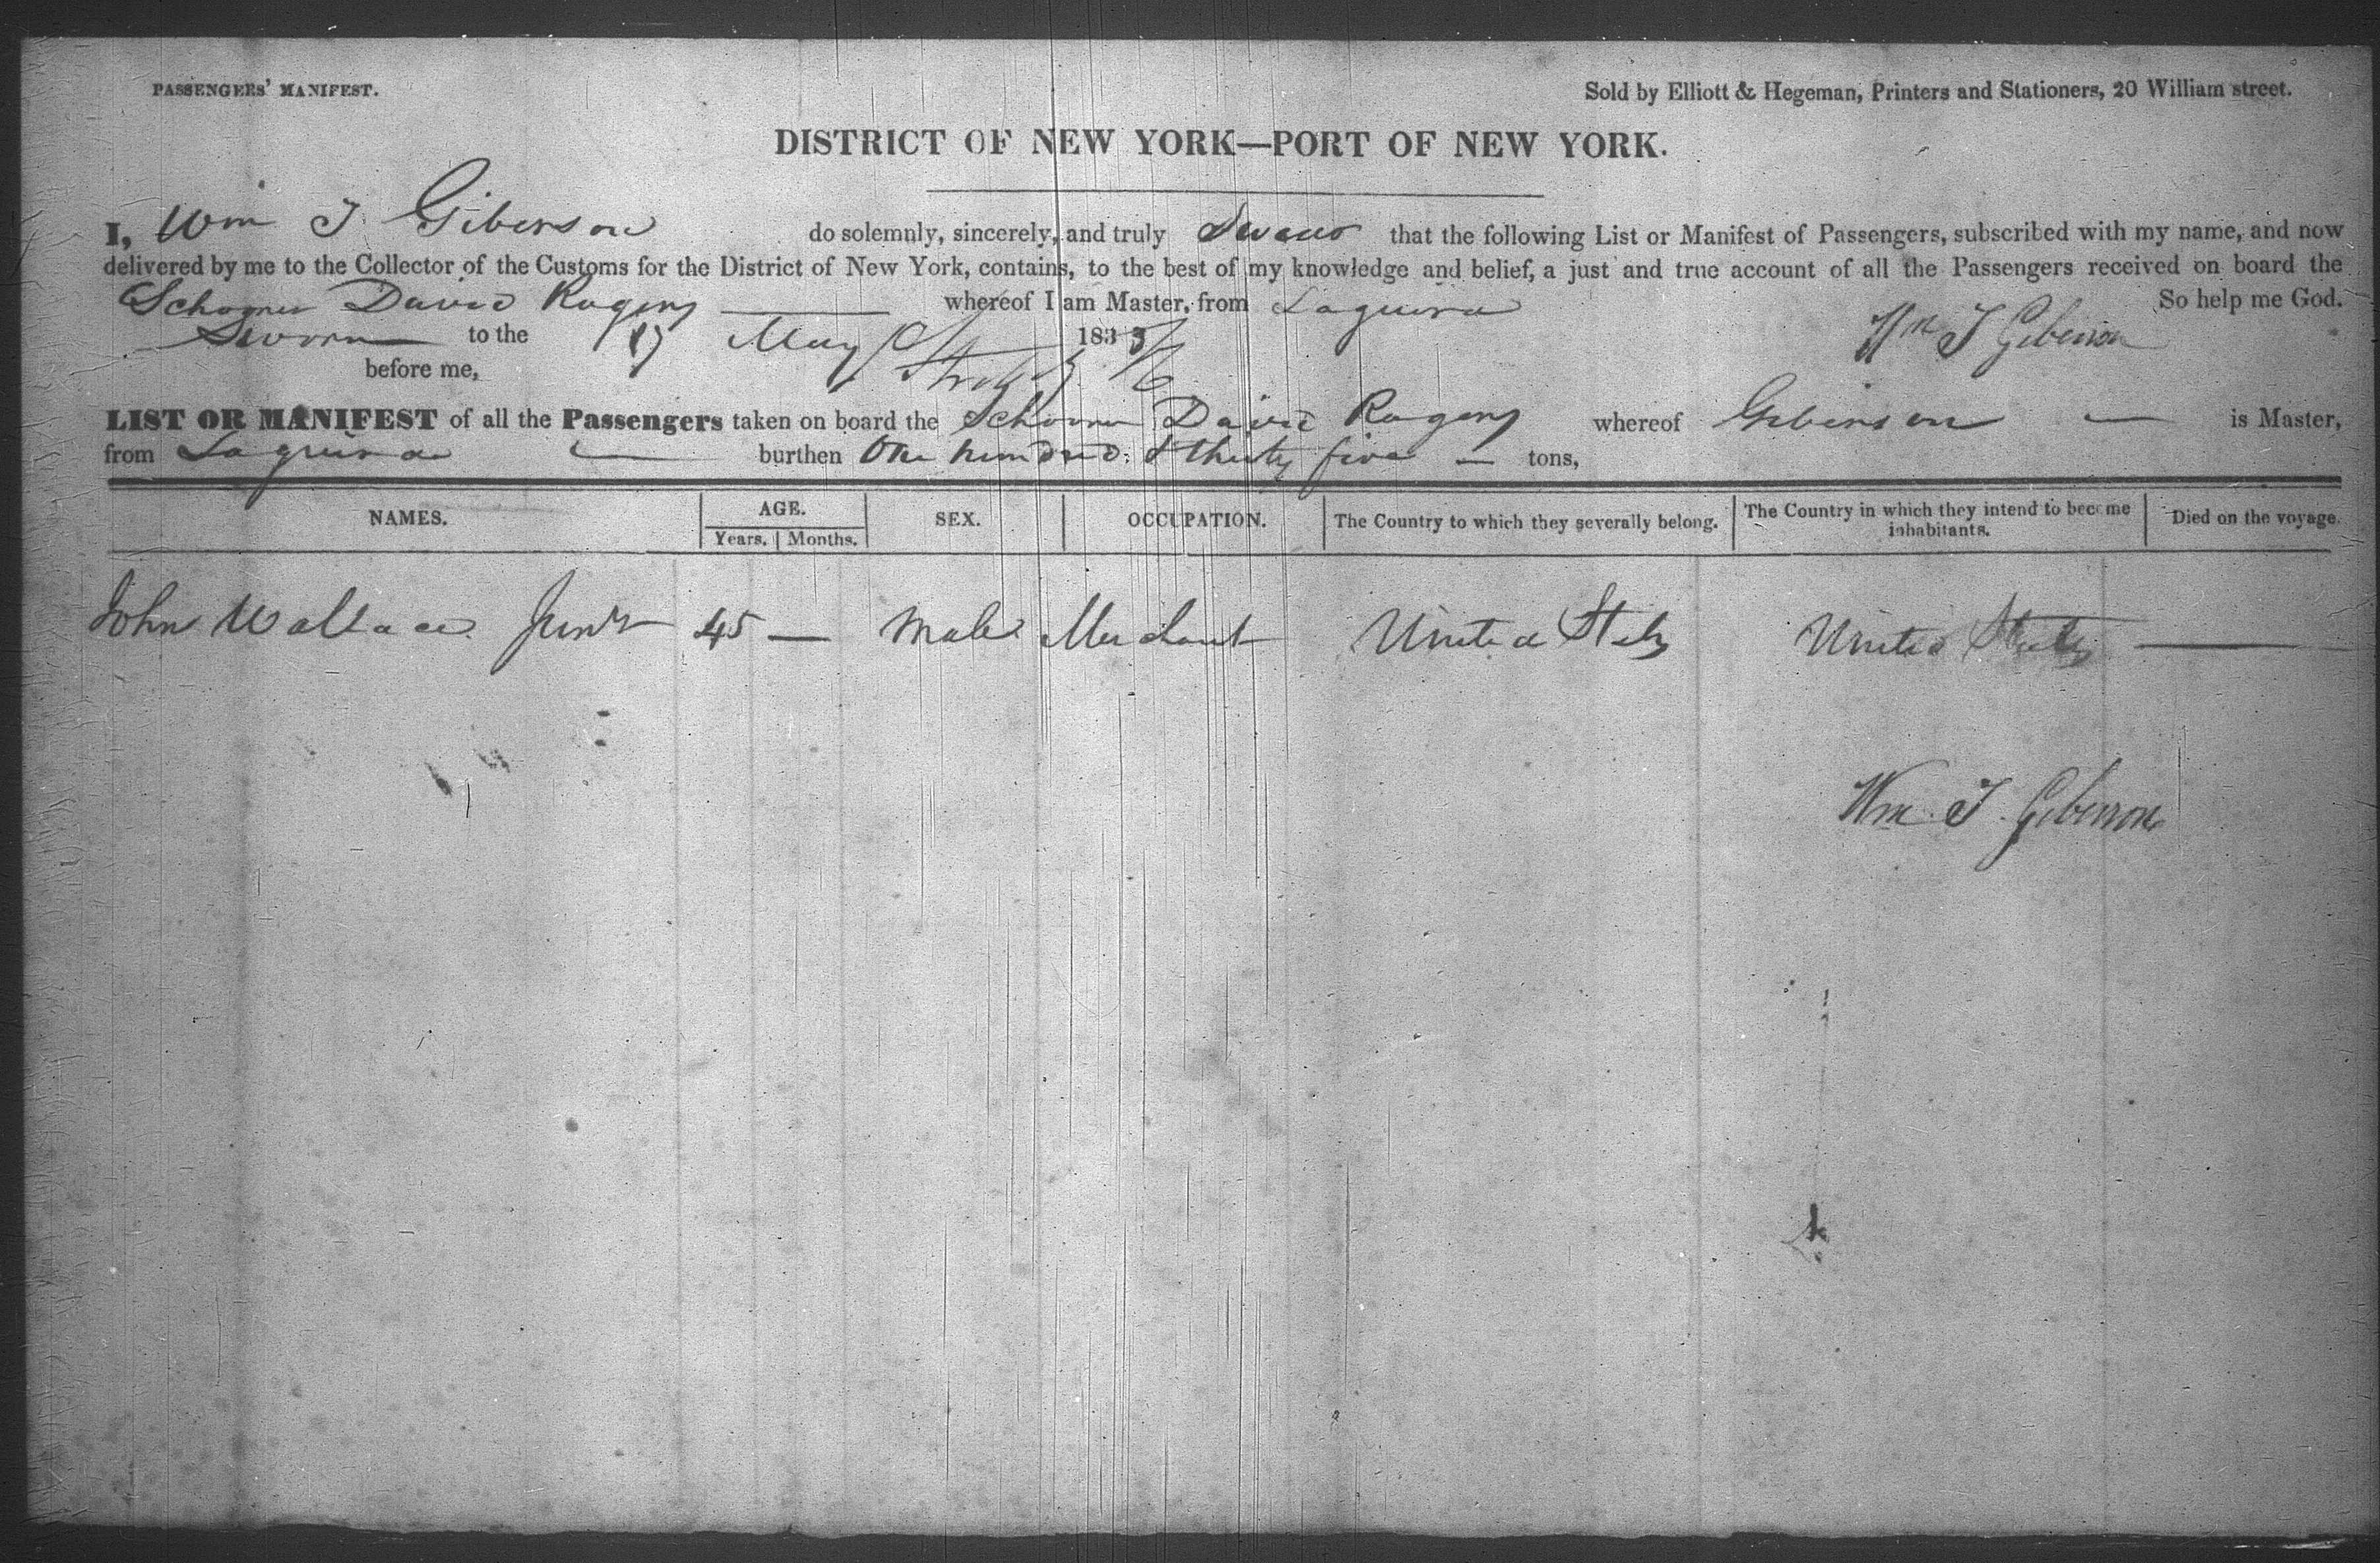 PASSENGERS' MANIFEST.
Sold by Elliott & Hegeman, Printers and Stationers, 20 William street.
DISTRICT OF NEW YORK—PORT OF NEW YORK.
I, Wm J Giberson do solemnly, sincerely, and truly Swear that the following List or Manifest of Passengers, subscribed with my name, and now
delivered by me to the Collector of the Customs for the District of New York, contains, to the best of my knowledge and belief, a just and true account of all the Passengers received on board the
Schooner David Rogers whereof I am Master, from Laguira So help me God.
Sworn to the 17 May 183 Wm J Giberson
before me,
LIST OR MANIFEST of all the Passengers taken on board the Schooner David Rogers whereof Giberson — is Master,
from Laguira — burthen One hundred & thirty five — tons,
NAMES. AGE. SEX. OCCUPATION. The Country to which they severally belong. The Country in which they intend to become inhabitants. Died on the voyage.
Years. Months.
John Wallace Junr 45 — Male Merchant United States United States —
Wm J Giberson